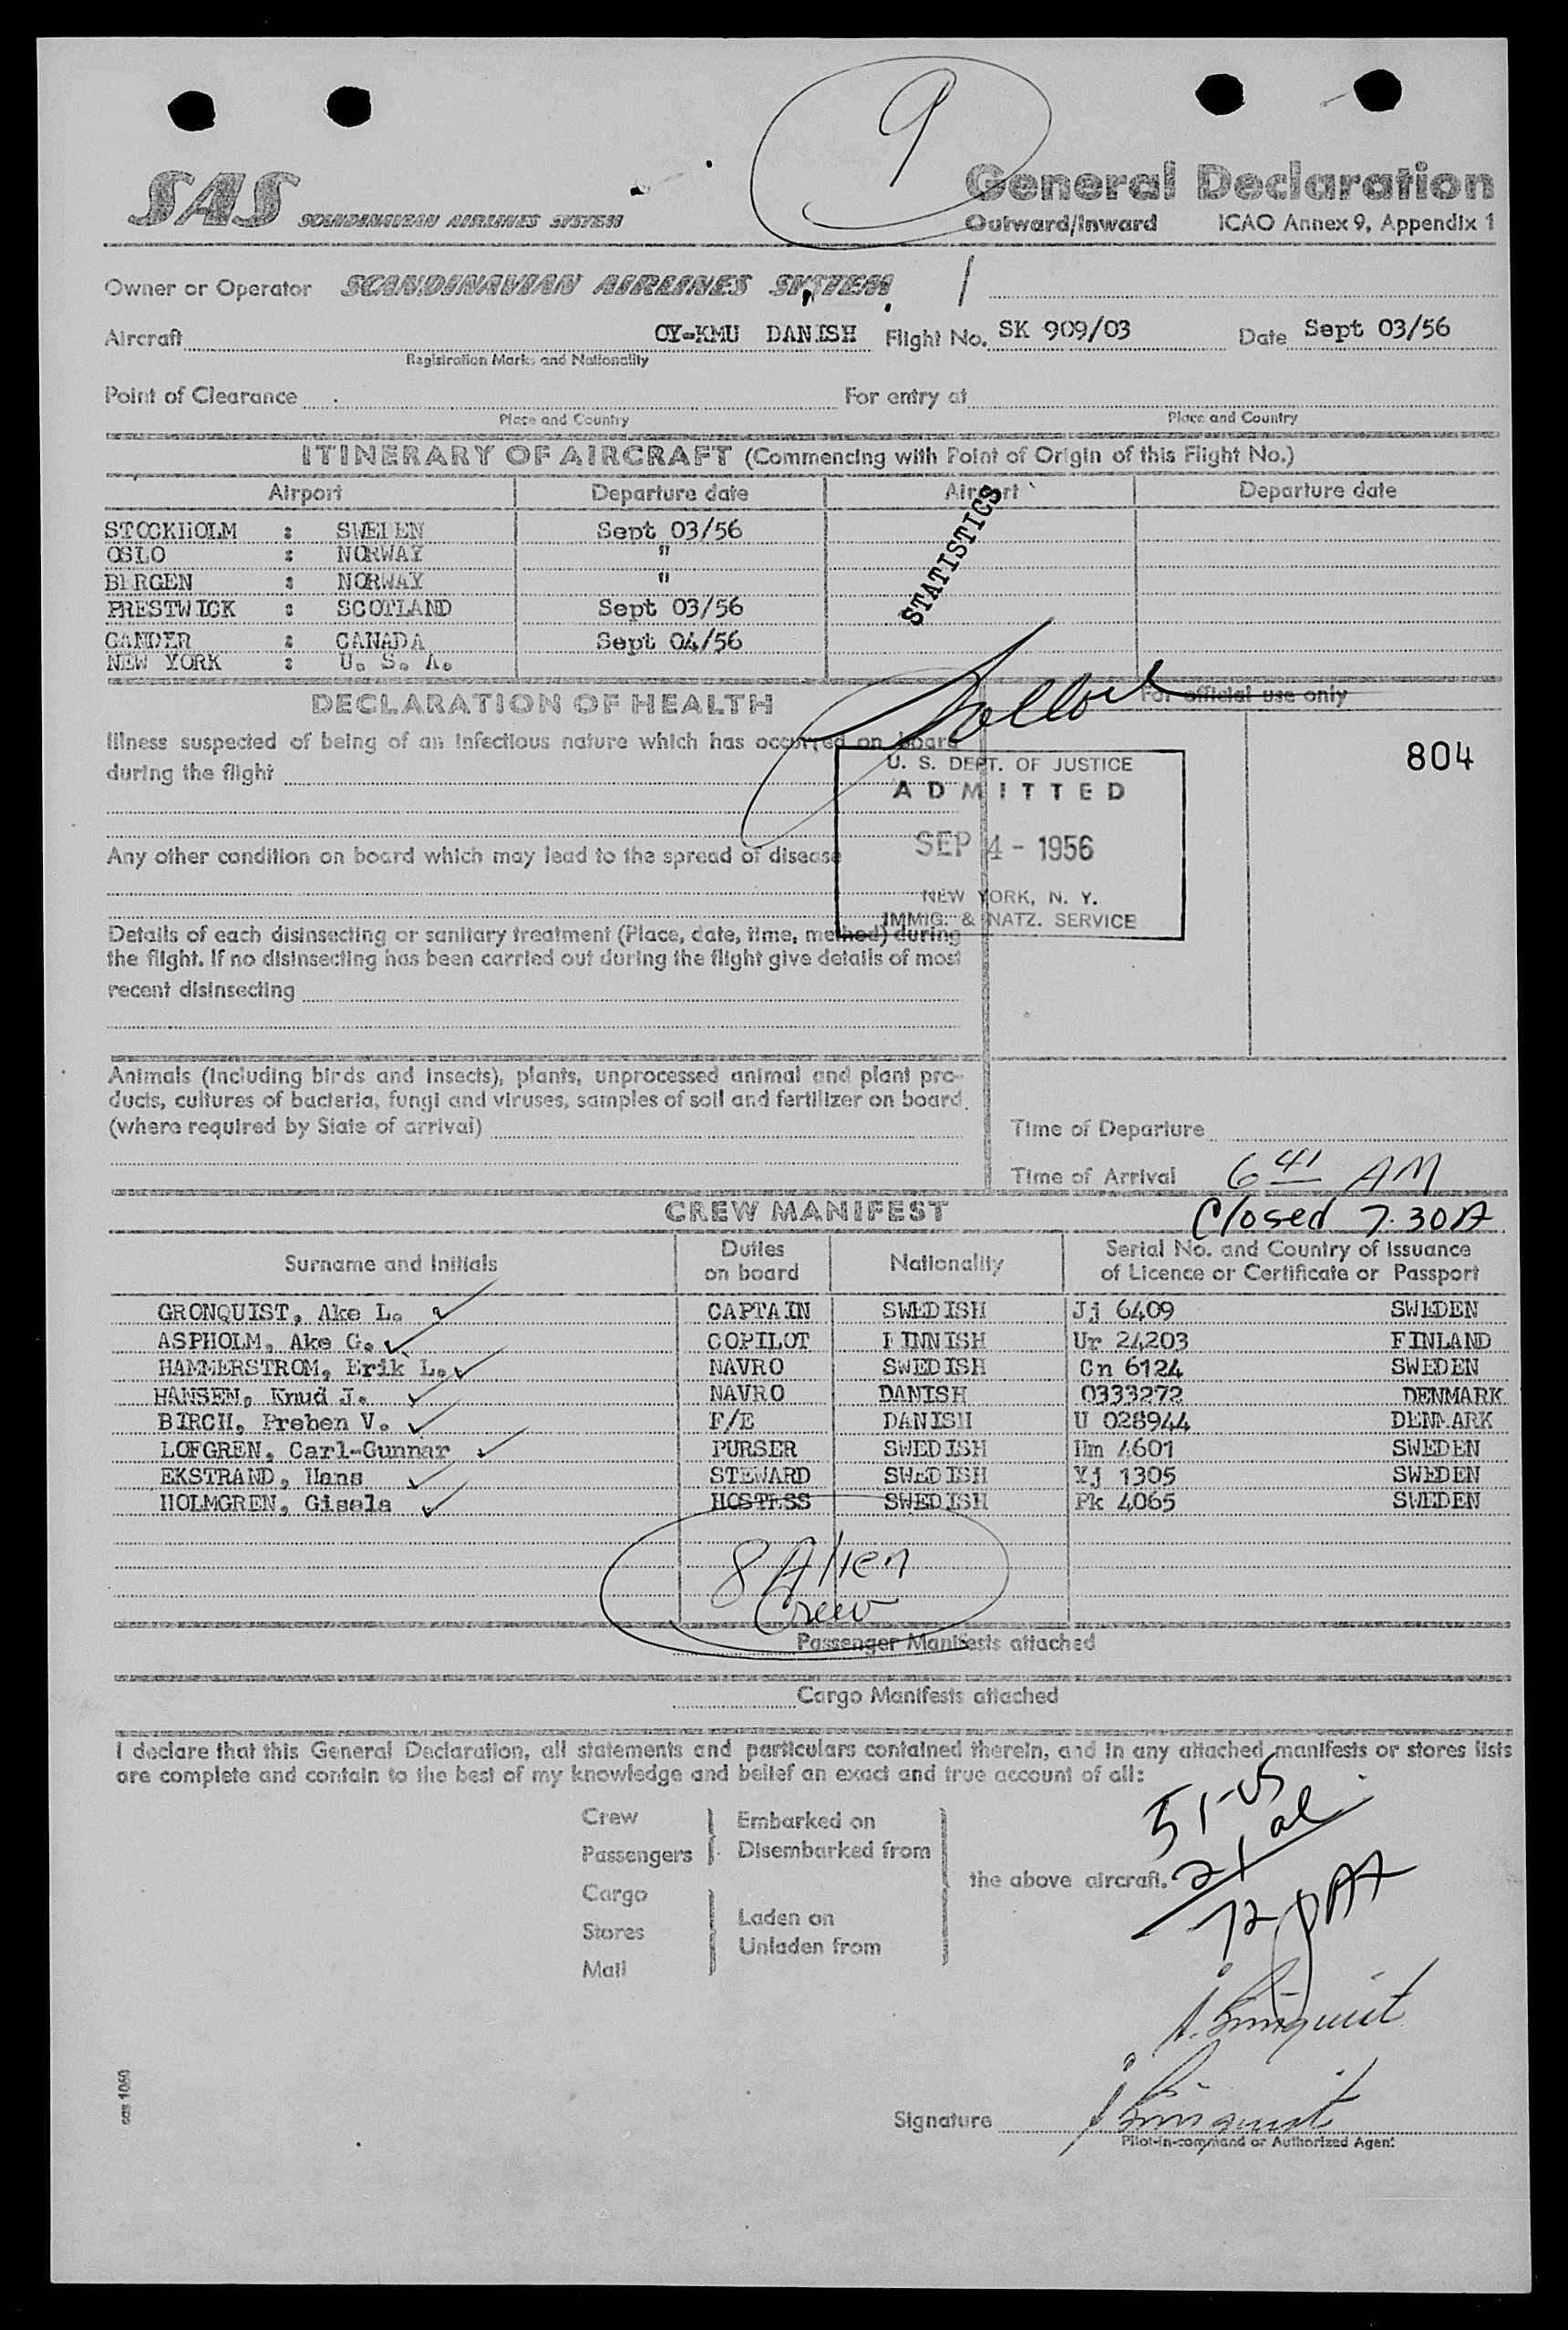 9
SAS SCANDINAVIAN AIRLINES SYSTEM
General Declaration
Outward/Inward ICAO Annex 9, Appendix 1
Owner or Operator SCANDINAVIAN AIRLINES SYSTEM /
Aircraft OY-KMU DANISH Flight No. SK 909/03 Date Sept 03/56
Registration Marks and Nationality
Point of Clearance For entry at
Place and Country Place and Country
ITINERARY OF AIRCRAFT (Commencing with Point of Origin of this Flight No.)
Airport Departure date Airport Departure date
STOCKHOLM : SWEDEN Sept 03/56
OSLO : NORWAY "
BERGEN : NORWAY "
PRESTWICK : SCOTLAND Sept 03/56
GANDER : CANADA Sept 04/56
NEW YORK : U. S. A.
STATISTICS
DECLARATION OF HEALTH
For official use only
804
Illness suspected of being of an infectious nature which has occurred on board
during the flight
U. S. DEPT. OF JUSTICE
ADMITTED
SEP 4 - 1956
NEW YORK, N. Y.
IMMIG. & NATZ. SERVICE
Any other condition on board which may lead to the spread of disease
Details of each disinsecting or sanitary treatment (Place, date, time, method) during
the flight. If no disinsecting has been carried out during the flight give details of most
recent disinsecting
Animals (including birds and insects), plants, unprocessed animal and plant pro-
ducts, cultures of bacteria, fungi and viruses, samples of soil and fertilizer on board.
(where required by State of arrival)
Time of Departure
Time of Arrival 6 41 AM
Closed 7.30A
CREW MANIFEST
Surname and Initials Duties on board Nationality Serial No. and Country of Issuance of Licence or Certificate or Passport
GRONQUIST, Ake L. CAPTAIN SWEDISH Jj 6409 SWEDEN
ASPHOLM, Ake G. COPILOT FINNISH Ur 24203 FINLAND
HAMMERSTROM, Erik L. NAVRO SWEDISH Cn 6124 SWEDEN
HANSEN, Knud J. NAVRO DANISH 0333272 DENMARK
BIRCH, Preben V. F/E DANISH U 028944 DENMARK
LOFGREN, Carl-Gunnar PURSER SWEDISH Hm 4601 SWEDEN
EKSTRAND, Hans STEWARD SWEDISH Yj 1305 SWEDEN
HOLMGREN, Gisela HOSTESS SWEDISH Pk 4065 SWEDEN
8 Alien
Crew
Passenger Manifests attached
Cargo Manifests attached
I declare that this General Declaration, all statements and particulars contained therein, and in any attached manifests or stores lists
are complete and contain to the best of my knowledge and belief an exact and true account of all:
Crew
Passengers
Embarked on
Disembarked from
Cargo
Stores
Mail
Laden on
Unladen from
the above aircraft.
51-US
21 al
72 PAX
Signature
Pilot-in-command or Authorized Agent
sas 1060